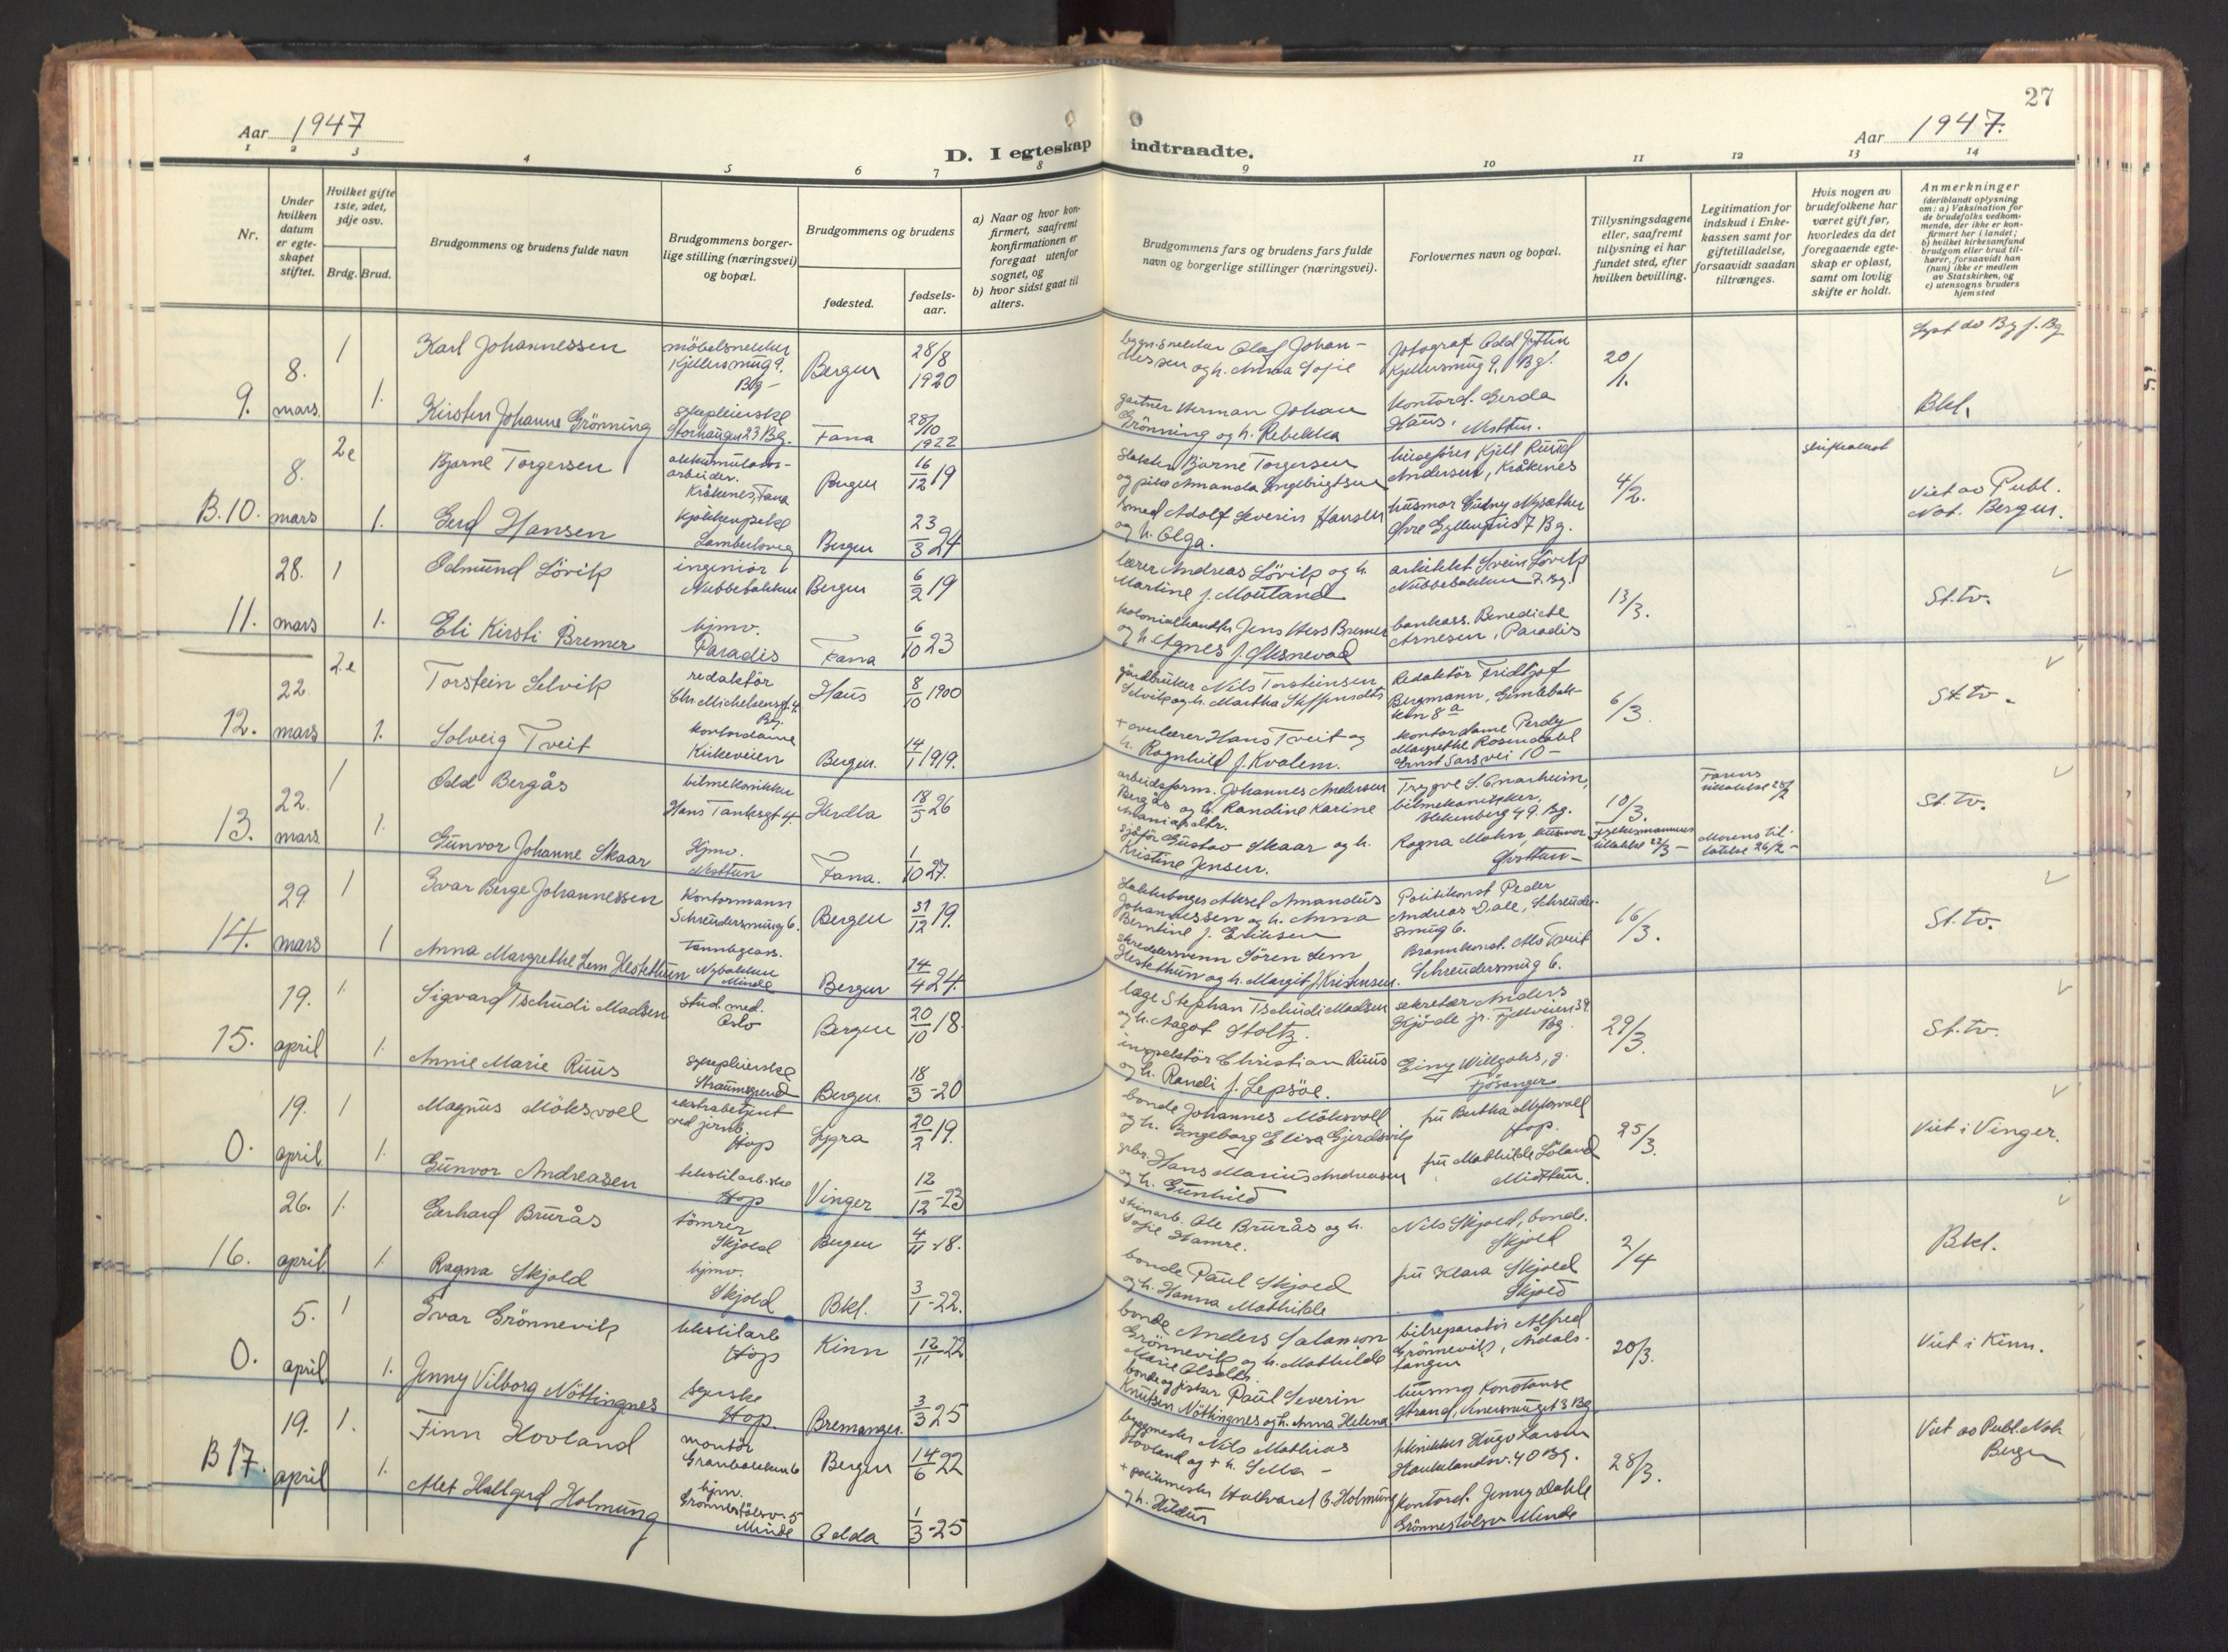 27
Aar 1947
Aar 1947.
D. I egteskap indtraadte.
1 2 3 4 5 6 7 8 9 10 11 12 13 14
Nr.
Under hvilken datum er egteskapet stiftet.
Hvilket gifte 1ste, 2det, 3dje osv.
Brdg. Brud.
Brudgommens og brudens fulde navn
Brudgommens borgerlige stilling (næringsvei) og bopæl.
Brudgommens og brudens
fødested.
fødselsaar.
a) Naar og hvor konfirmert, saafremt konfirmationen er foregaat utenfor sognet, og
b) hvor sidst gaat til alters.
Brudgommens fars og brudens fars fulde navn og borgerlige stillinger (næringsvei).
Forlovernes navn og bopæl.
Tillysningsdagene eller, saafremt tillysning ei har fundet sted, efter hvilken bevilling.
Legitimation for indskud i Enkekassen samt for giftetilladelse, forsaavidt saadan tiltrænges.
Hvis nogen av brudefolkene har været gift før, hvorledes da det foregaaende egteskap er opløst, samt om lovlig skifte er holdt.
Anmerkninger (deriblandt oplysning om: a) Vaksination for de brudefolks vedkommende, der ikke er konfirmert her i landet; b) hvilket kirkesamfund brudgom eller brud tilhører, forsaavidt han (hun) ikke er medlem av Statskirken, og c) utensogns bruders hjemsted
9. 8. mars 1 1.
Karl Johannessen
Bergen 28/8 1920
Olaf Johannessen og h. Anna Sofie
fotograf Odd
20/1.
Kirsten Johanne Grönning
sykepleierske
Storhaugen 23 Bg.
Fana 28/10 1922
gartner Herman Johan Grönning og h. Rebekka
kontord. Gerda Haus, Nesttun.
Bkl.
B. 10. 8. mars 2e 1.
Bjarne Torgersen
Kråkenes, Fana
Bergen 16/12 19
Bjarne Torgersen og Amanda Engebrigtsen
Kjell Andersen, Kråkenes
4/2.
Viet av Publ. Not. Bergen.
Gerd Hansen
Bergen 23/3 24
smed Adolf Severin Hansen og h. Olga.
11. 28. mars 1 1.
Odmund Lövik
ingeniör
Nubbebakken
Bergen 6/2 19
lærer Andreas Lövik og h. Martine f. Mouland
arkitekt Svein Lövik
Nubbebakken 7. Bg.
13/3.
St.tv.
Eli Kirsti Bremer
hjmv.
Paradis
Fana 6/10 23
Jens Hess Bremer og h. Agnes f.
Benedicte Arnesen, Paradis
12. 22. mars 2e 1.
Torstein Selvik
redaktör
Chr Michelsensgt. 4. Bg.
Haus 8/10 1900
gårdbruker Nils Torsteinsen Selvik og h. Martha
Redaktör Fridtjof Bergmann,
6/3.
St.tv.
Solveig Tveit
kontordame
Kirkeveien
Bergen. 14/1 1919.
+ overlærer Hans Tveit og h. Ragnhild f. Kvalem.
kontordame Perdy Margrethe Rosendahl
Ernst Sars vei 10 -
13. 22. mars 1 1.
Odd Bergås
bilmekaniker
Hans Tanksgt 4.
Herdla 18/5 26
Johannes Andersen Bergås og h. Randine Karine
Trygve S.
bilmekaniker,
10/3.
St.tv.
Gunvor Johanne Skaar
Hjmv.
Nesttun
Fana. 1/10 27.
sjåför Gustav Skaar og h. Kristine Jensen.
Ragna Mohn, husmor
14. 29 mars 1 1
Ivar Berge Johannessen
Kontormann
Schreudersmug 6.
Bergen 31/12 19.
Aksel Amandus Johannessen og h. Anna Berntine f. Eriksen
Politikonst Peder Andreas Dale, Schreudersmug 6.
16/3.
St.tv.
Anna Margrethe Lem Hestethun
Nybakken
Minde
Bergen 14/4 24.
skreddersvenn Sören Lem Hestethun og h. Margit f. Kristensen.
Brannkonst. Tveit
Schreudersmug 6.
15. 19. april 1. 1.
Sigvard Tschudi Madsen
stud. med.
Oslo
Bergen 20/10 18.
læge Stephan Tschudi Madsen og h. Aagot Stoltz.
sekretær Anders Kjöde jr. Fjellveien 39. Bg.
29/3.
St.tv.
Annie Marie Ruus
sykepleierske
Straumegrend
Bergen. 18/3-20
inspektör Christian Ruus og h. Randi f. Lepsöe.
Fjösanger
0. 19. april 1 1.
Magnus Möksvoll
ekstrabetjent ved jernb.
Hop
Lygra 20/2 19.
bonde Johannes Möksvoll og h. Ingeborg Elisa Gjerdsvik
fru Bertha Möksvoll
Hop.
25/3.
Viet i Vinger.
Gunvor Andreasen
tekstilarb.ske
Hop
Vinger 12/12-23
Hans Marius Andreasen og h. Gunhild
fru Mathilde Löland
Midttun.
16. 26. april 1. 1.
Gerhard Brurås
tömrer
Skjold
Bergen 4/11-18.
Ole Brurås og h. Sofie Hamre.
Nils Skjold, bonde.
Skjold
2/4
Bkl.
Ragna Skjold
hjmv.
Skjold
Bkl. 3/1-22.
bonde Paul Skjold og h. Hanna Mathilde
fru Klara Skjold
Skjold
0. 5. april 1 1.
Ivar Grönnevik
tekstilarb
Hop
Kinn 12/11-22
bonde Anders Salamon Grönnevik og h. Mathilde Marie Olsdtr.
bilreparatör Alfred Grönnevik, Årdalstangen
20/3.
Viet i Kinn.
Jenny Vilborg Nöttingnes
syerske
Hop.
Bremanger. 3/3 25
bonde og fisker Paul Severin Knutsen Nöttingnes og h. Anna Helena.
Konstanse Strand,
B 17. 19. april 1. 1.
Finn Hovland
montör
Granbakken 6
Bergen 14/6 22
byggmester Nils Mathias Hovland og + h. Sella -
Hugo Larsen
Haukelandsv. 40 Bg.
28/3.
Viet av Publ. Not. Bergen
Alet Hallgerd Holmung
hjmv.
Grönnestölsv. 5
Minde
Odda 1/3-25
+ politimester Hallvard C. Holmung og h. Hildur
kontord. Jenny Dahle
Grönnestölsv Minde